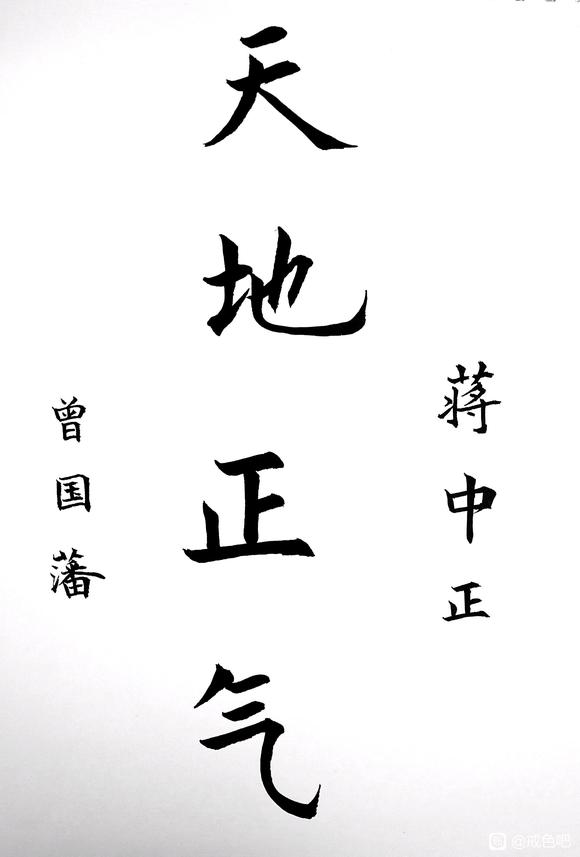 蒋中正
天地正气
曾国藩
@戒色吧